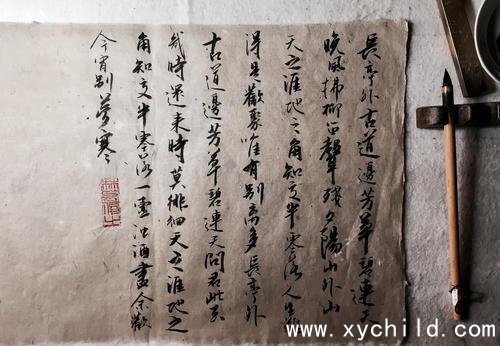 長亭外古道邊芳草碧連天
晚風拂柳笛聲殘夕陽山外山
天之涯地之角知交半零落人生難
得是歡聚唯有別離多長亭外
古道邊芳草碧連天問君此去
幾時還來時莫徘徊天之涯地之
角知交半零落一壺濁酒盡余歡
今宵別夢寒
www.xychild.com